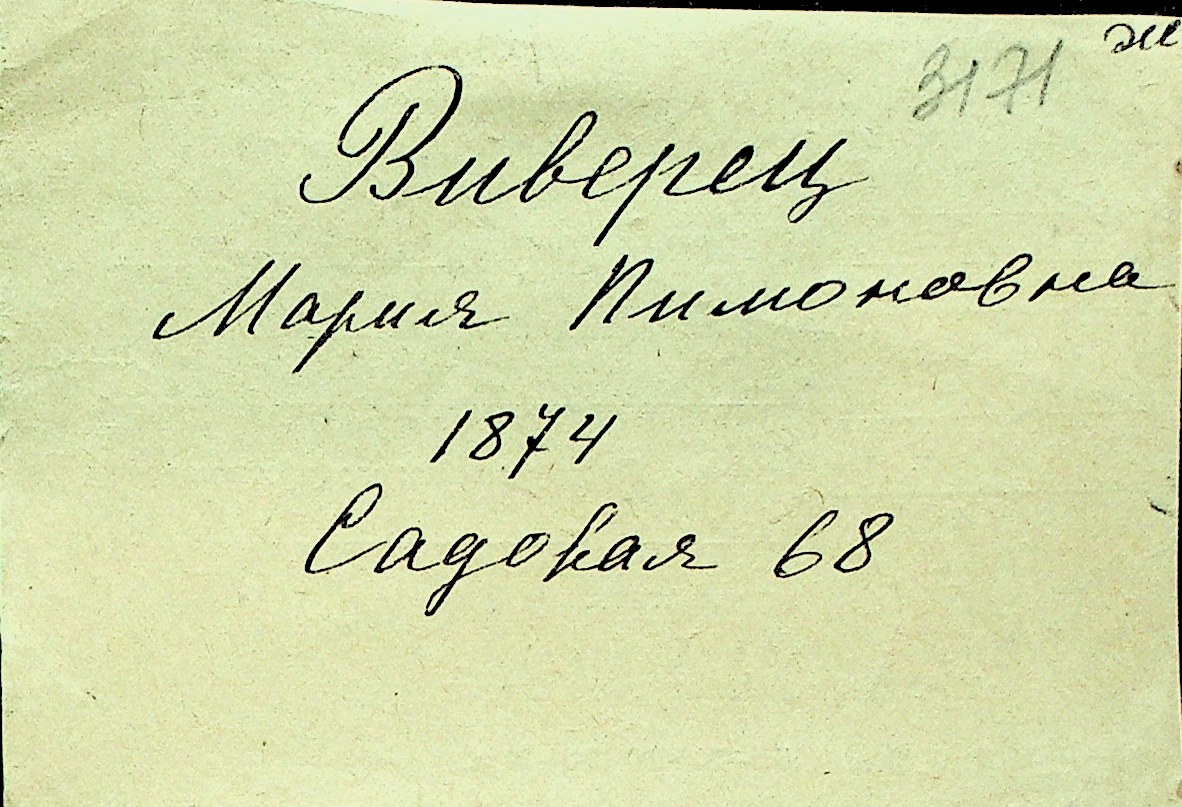 ж
3171
Виверец
Мария Пимоновна
1874
Садовая 68